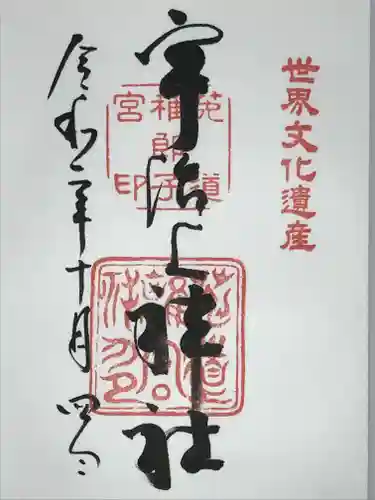 世界文化遺産
宇治上神社
菟道
稚郎子
宮印
令和二年十月四日